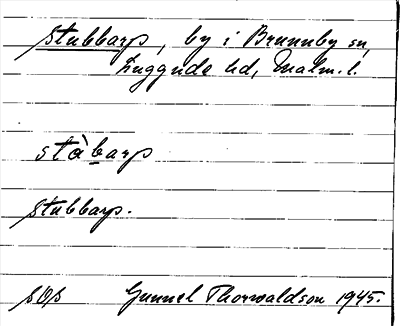 Stubbarp, by i Brunnby sn,
Luggude hd, Malm. l.
stàbarp
Stubbarp.
SOS Gunnel Thorwaldson 1945.